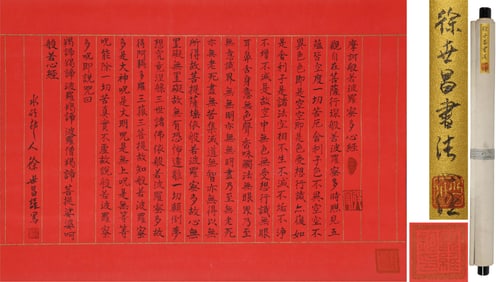 摩訶般若波羅蜜多心經
觀自在菩薩行深般若波羅蜜多時照見五
蘊皆空度一切苦厄舍利子色不異空空不
異色色即是空空即是色受想行識亦復如
是舍利子是諸法空相不生不滅不垢不淨
不增不減是故空中無色無受想行識無眼
耳鼻舌身意無色聲香味觸法無眼界乃至
無意識界無無明亦無無明盡乃至無老死
亦無老死盡無苦集滅道無智亦無得以無
所得故菩提薩埵依般若波羅蜜多故心無
罣礙無罣礙故無有恐怖遠離一切顛倒夢
想究竟涅槃三世諸佛依般若波羅蜜多故
得阿耨多羅三藐三菩提故知般若波羅蜜
多是大神呪是大明呪是無上呪是無等等
呪能除一切苦真實不虛故說般若波羅蜜
多呪即說呪曰
揭諦揭諦 波羅揭諦 波羅僧揭諦 菩提娑婆訶
般若心經
水竹邨人 徐世昌
徐世昌書法